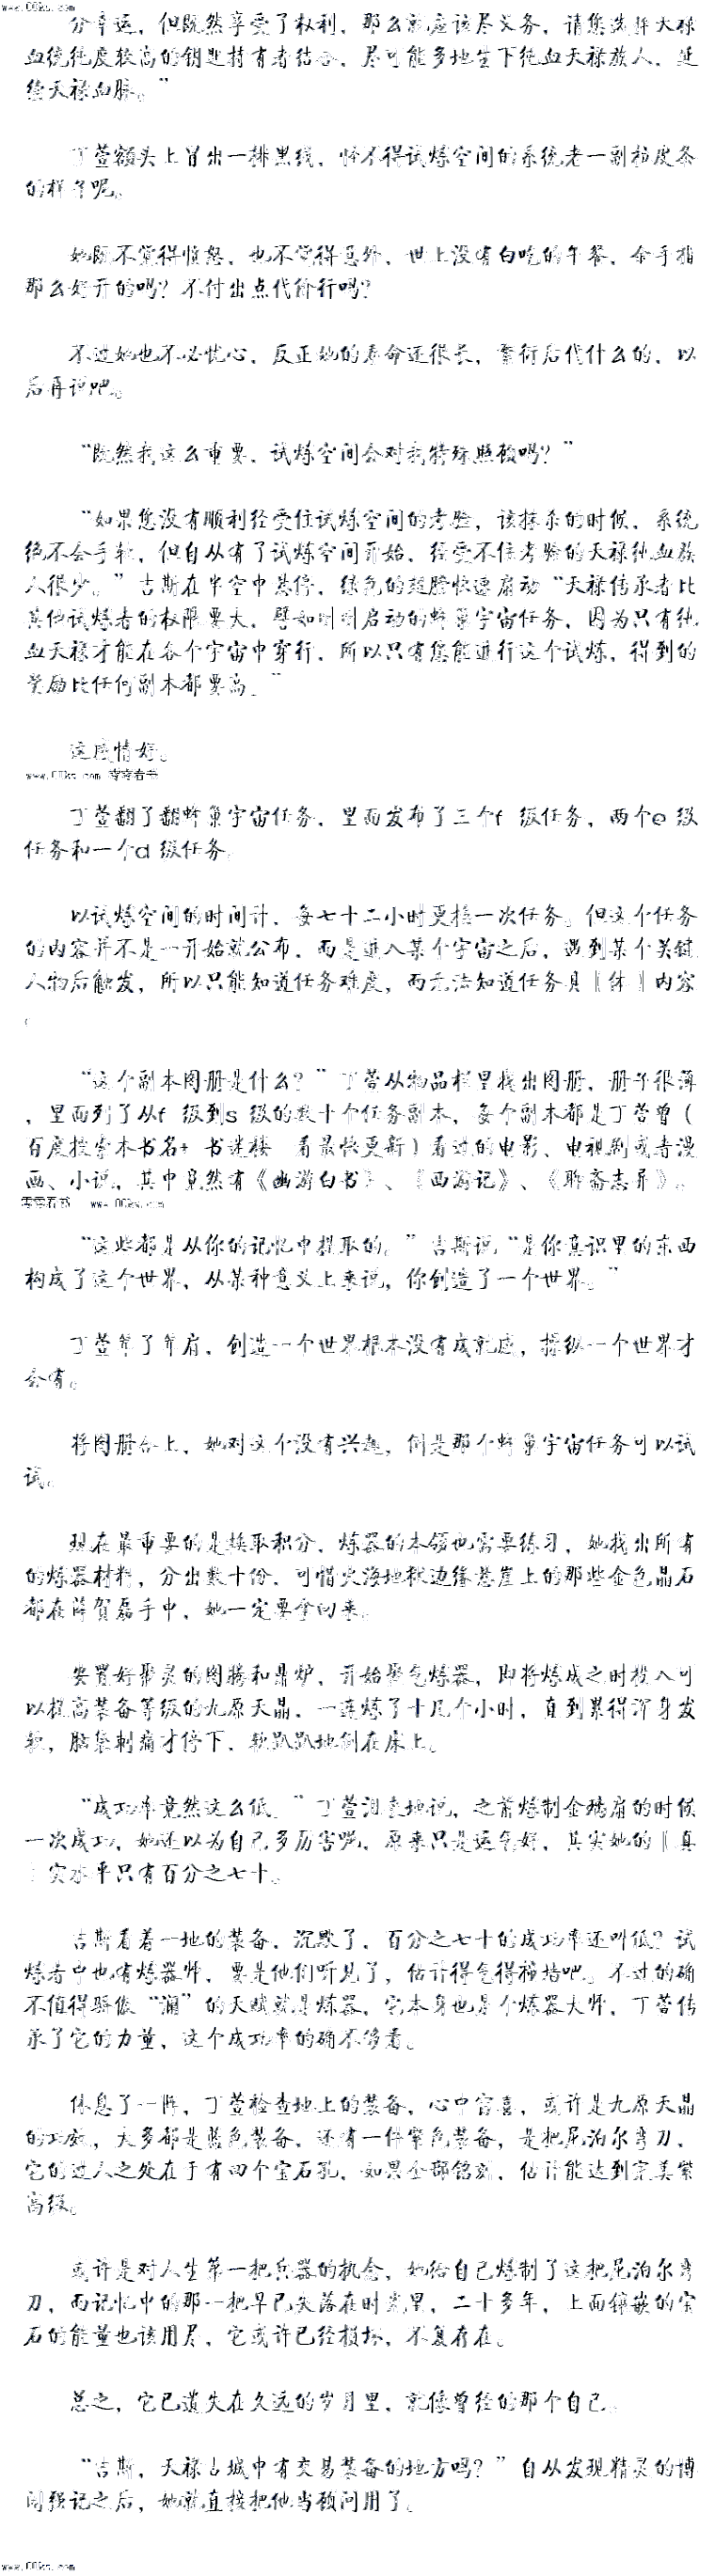 www.00ks.com
分幸运，但既然享受了权利，那么就应该尽义务，请您选择天禄
血统纯度较高的钥匙持有者结合，尽可能多地生下纯血天禄族人，延
续天禄血脉。”
丁萱额头上冒出一排黑线，怪不得试炼空间的系统老一副拉皮条
的样子呢。
她既不觉得愤怒，也不觉得意外，世上没有白吃的午餐，金手指
那么好开的吗？不付出点代价行吗？
不过她也不必忧心，反正她的寿命还很长，繁衍后代什么的，以
后再说吧。
“既然我这么重要，试炼空间会对我特殊照顾吗？”
“如果您没有顺利经受住试炼空间的考验，该抹杀的时候，系统
绝不会手软，但自从有了试炼空间开始，经受不住考验的天禄纯血族
人很少。”吉斯在半空中悬停，绿色的翅膀快速扇动“天禄传承者比
其他试炼者的权限要大，譬如时时启动的蜂巢宇宙任务，因为只有纯
血天禄才能在各个宇宙中穿行，所以只有您能进行这个试炼，得到的
奖励比任何副本都要高。”
这感情好。
www.00ks.com 零零看书
丁萱翻了翻蜂巢宇宙任务，里面发布了三个f 级任务，两个e 级
任务和一个d 级任务。
以试炼空间的时间计，每七十二小时更换一次任务。但这个任务
的内容并不是一开始就公布，而是进入某个宇宙之后，遇到某个关键
人物后触发，所以只能知道任务难度，而无法知道任务具〖体〗内容
。
“这个副本图册是什么？”丁萱从物品栏里找出图册，册子很薄
，里面列了从f 级到s 级的数十个任务副本，每个副本都是丁萱曾（
百度搜索本书名+ 书迷楼 看最快更新）看过的电影、电视剧或者漫
画、小说，其中竟然有《幽游白书》、《西游记》、《聊斋志异》。
零零看书 www.00ks.com
“这些都是从你的记忆中提取的。”吉斯说“是你意识里的东西
构成了这个世界，从某种意义上来说，你创造了一个世界。”
丁萱耸了耸肩，创造一个世界根本没有成就感，操纵一个世界才
会有。
将图册合上，她对这个没有兴趣，倒是那个蜂巢宇宙任务可以试
试。
现在最重要的是换取积分，炼器的本领也需要练习，她找出所有
的炼器材料，分出数十份，可惜火海地狱边缘悬崖上的那些金色晶石
都在薛贺磊手中，她一定要拿回来。
安置好聚灵的图腾和鼎炉，开始聚气炼器，即将炼成之时投入可
以提高装备等级的九原天晶，一连炼了十几个小时，直到累得浑身发
软，脑袋刺痛才停下，软趴趴地倒在床上。
“成功率竟然这么低。”丁萱沮丧地说，之前炼制金璃扇的时候
一次成功，她还以为自己多厉害呢，原来只是运气好，其实她的〖真
〗实水平只有百分之七十。
吉斯看着一地的装备，沉默了，百分之七十的成功率还叫低？试
炼者中也有炼器师，要是他们听见了，估计得气得撞墙吧。不过的确
不值得骄傲“澜”的天赋就是炼器，它本身也是个炼器大师，丁萱传
承了它的力量，这个成功率的确不够看。
休息了一阵，丁萱检查地上的装备，心中窃喜，或许是九原天晶
的功效，大多都是蓝色装备，还有一件紫色装备，是把尼泊尔弯刀，
它的过人之处在于有四个宝石孔，如果全部铭刻，估计能达到完美紫
高级。
或许是对人生第一把兵器的执念，她给自己炼制了这把尼泊尔弯
刀，而记忆中的那一把早已失落在时光里，二十多年，上面镶嵌的宝
石的能量也该用尽，它或许已经损坏，不复存在。
总之，它已遗失在久远的岁月里，就像曾经的那个自己。
“吉斯，天禄古城中有交易装备的地方吗？”自从发现精灵的博
闻强记之后，她就直接把他当顾问用了。
www.00ks.com